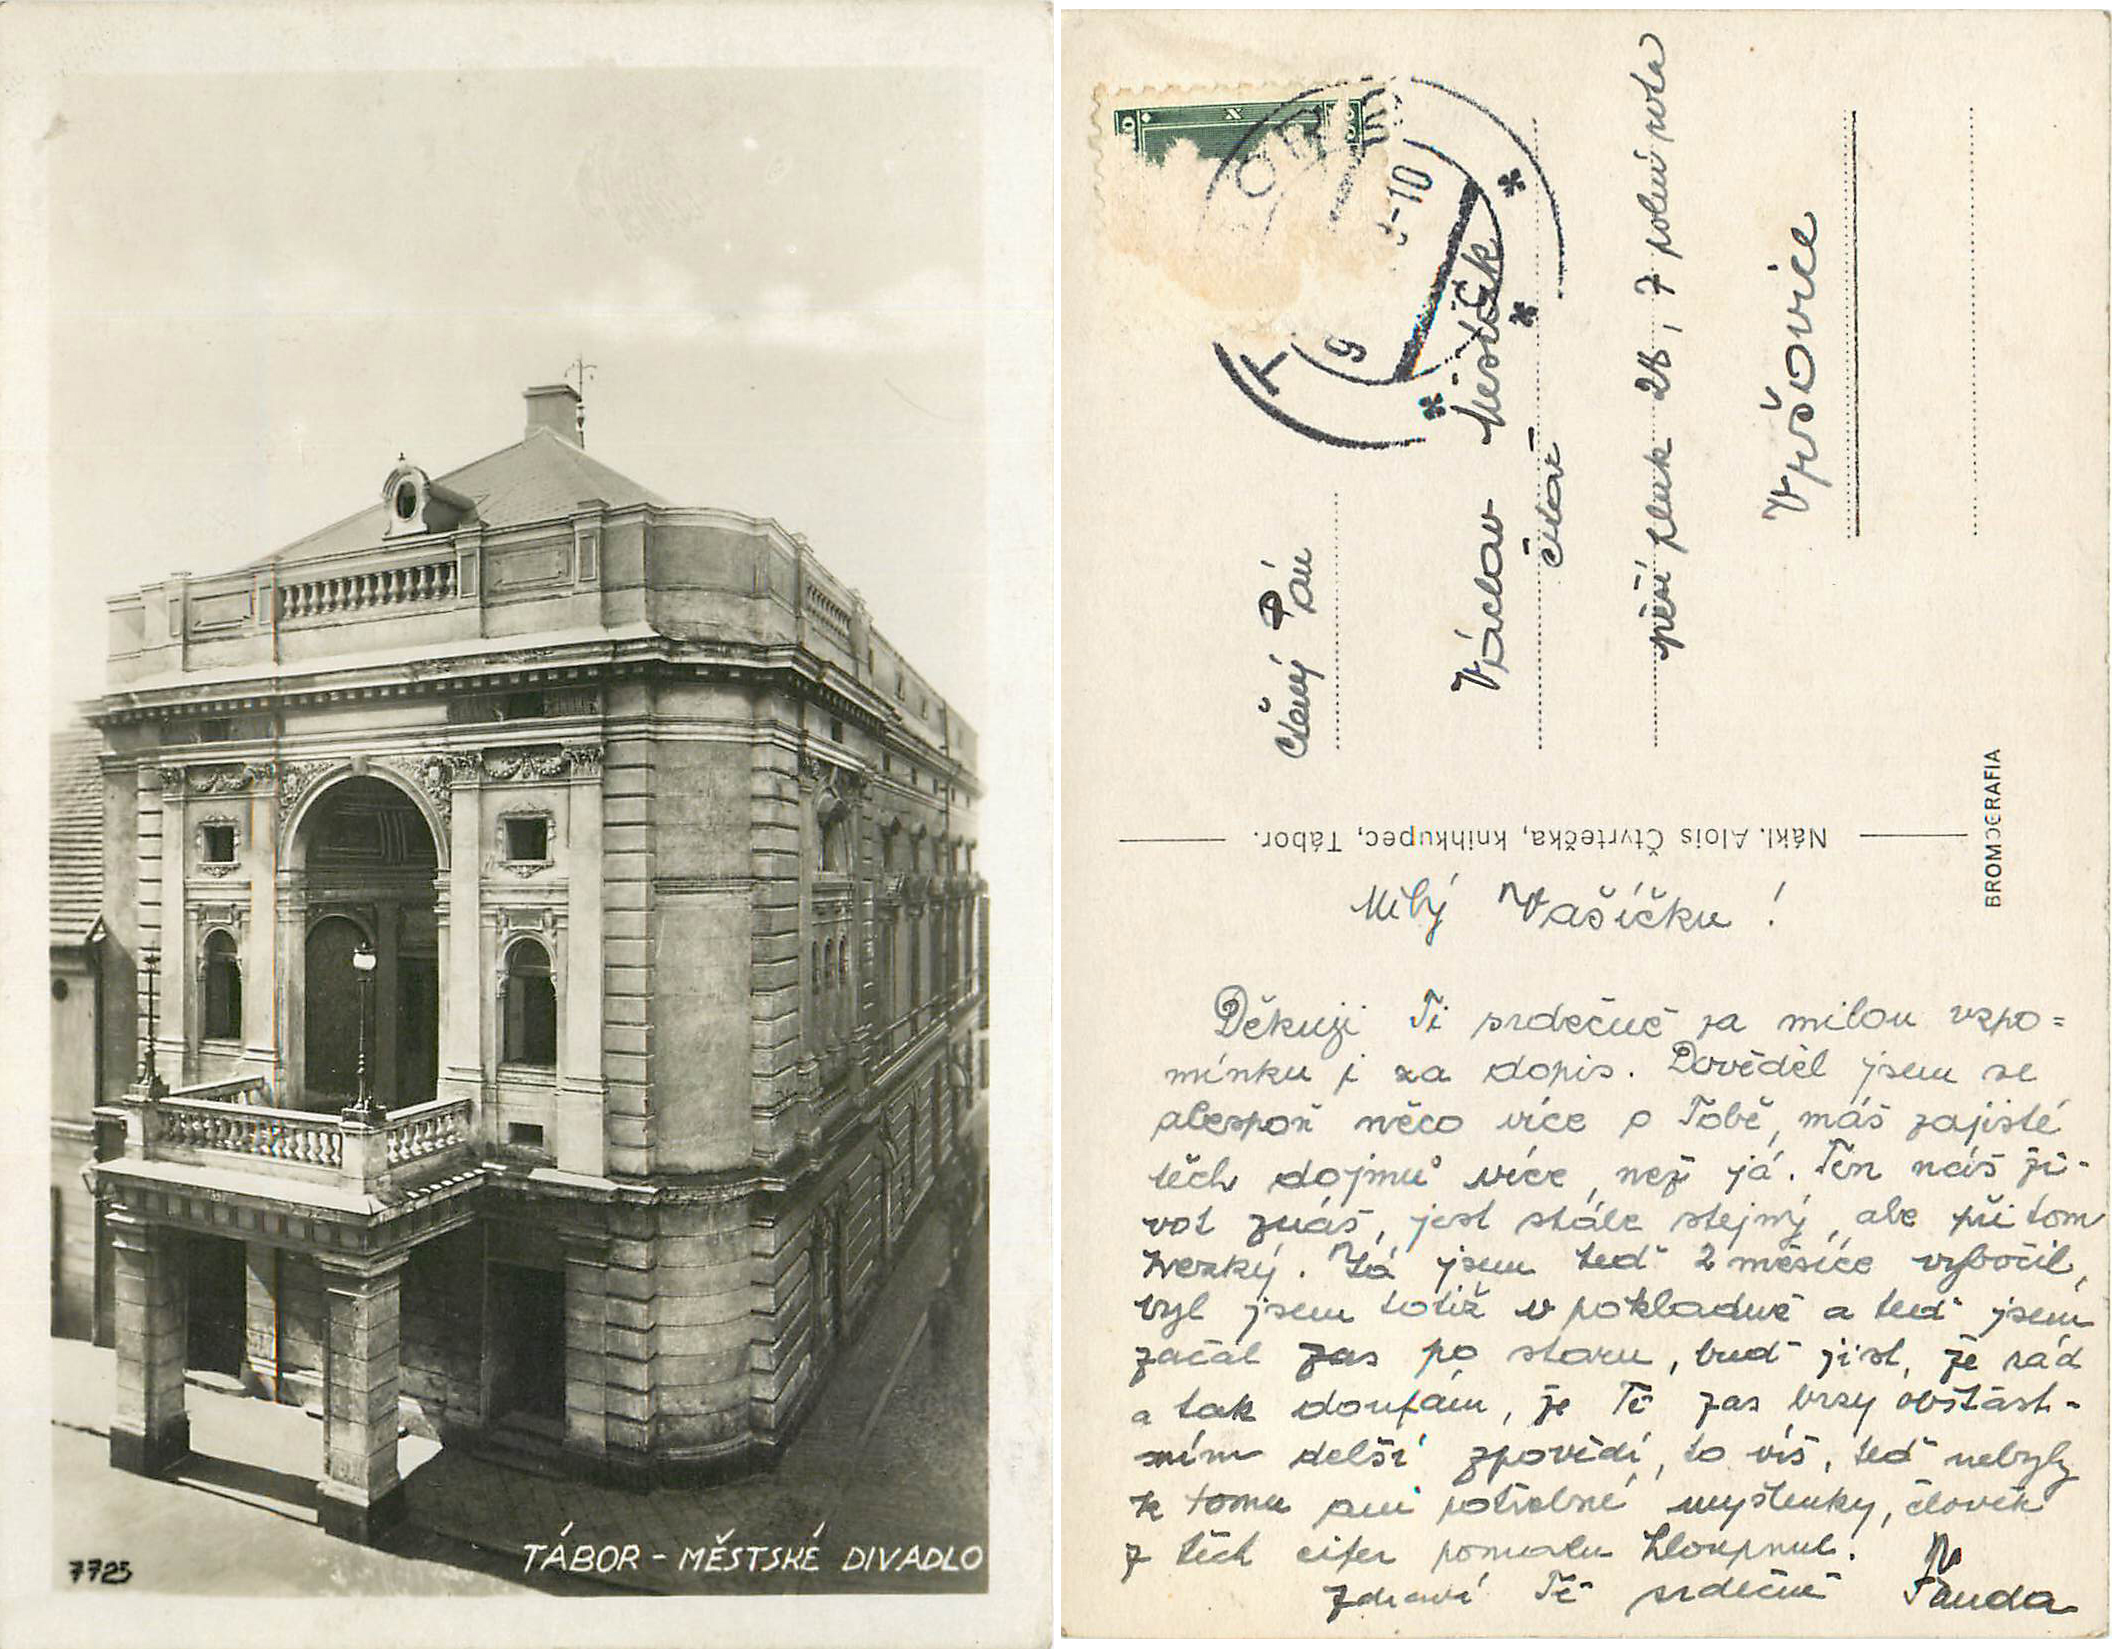 7725
TÁBOR - MĚSTSKÉ DIVADLO
TÁBOR
9
-10
Ctěný Pán
Václav Mistčák
čětař
pěší pluk 28, 7 polní rota
Vršovice
Nákl. Alois Čtvrtečka, knihkupec, Tábor.
BROMOGRAFIA
Milý Vašíčku!
Děkuji Ti srdečně za milou vzpo=
mínku i za dopis. Dověděl jsem se
alespoň něco více o Tobě, máš zajisté
těch dojmů více, než já. Ten náš ži-
vot znáš, jest stále stejný, ale při tom
hezký. Já jsem teď 2 měsíce vybočil,
byl jsem totiž v pokladně a teď jsem
začal zas po staru, buď jist, že rád
a tak doufám, že Tě zas brzy obšťast-
ním delší zpovědí, to víš, teď nebyly
k tomu ani potřebné myšlenky, člověk
z těch cifer pomalu hloupnul.
Zdraví Tě srdečně Fanda